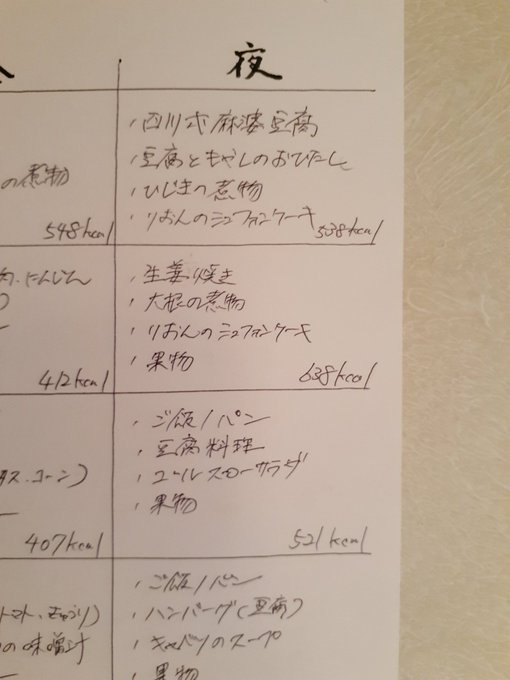 夜
・四川式麻婆豆腐
・豆腐ともやしのおひたし
の煮物
・ひじきの煮物
・りおんのシュファンケーキ
548kcal
538kcal
肉、にんじん
・生姜焼き
・大根の煮物
・りおんのシュファンケーキ
・果物
412kcal
638kcal
・ご飯/パン
・豆腐料理
・コールスローサラダ
・果物
タス、コーン)
407kcal
521kcal
・ご飯/パン
・ハンバーグ(豆腐)
トマト、きゅうり)
・キャベツのスープ
の味噌汁
・果物